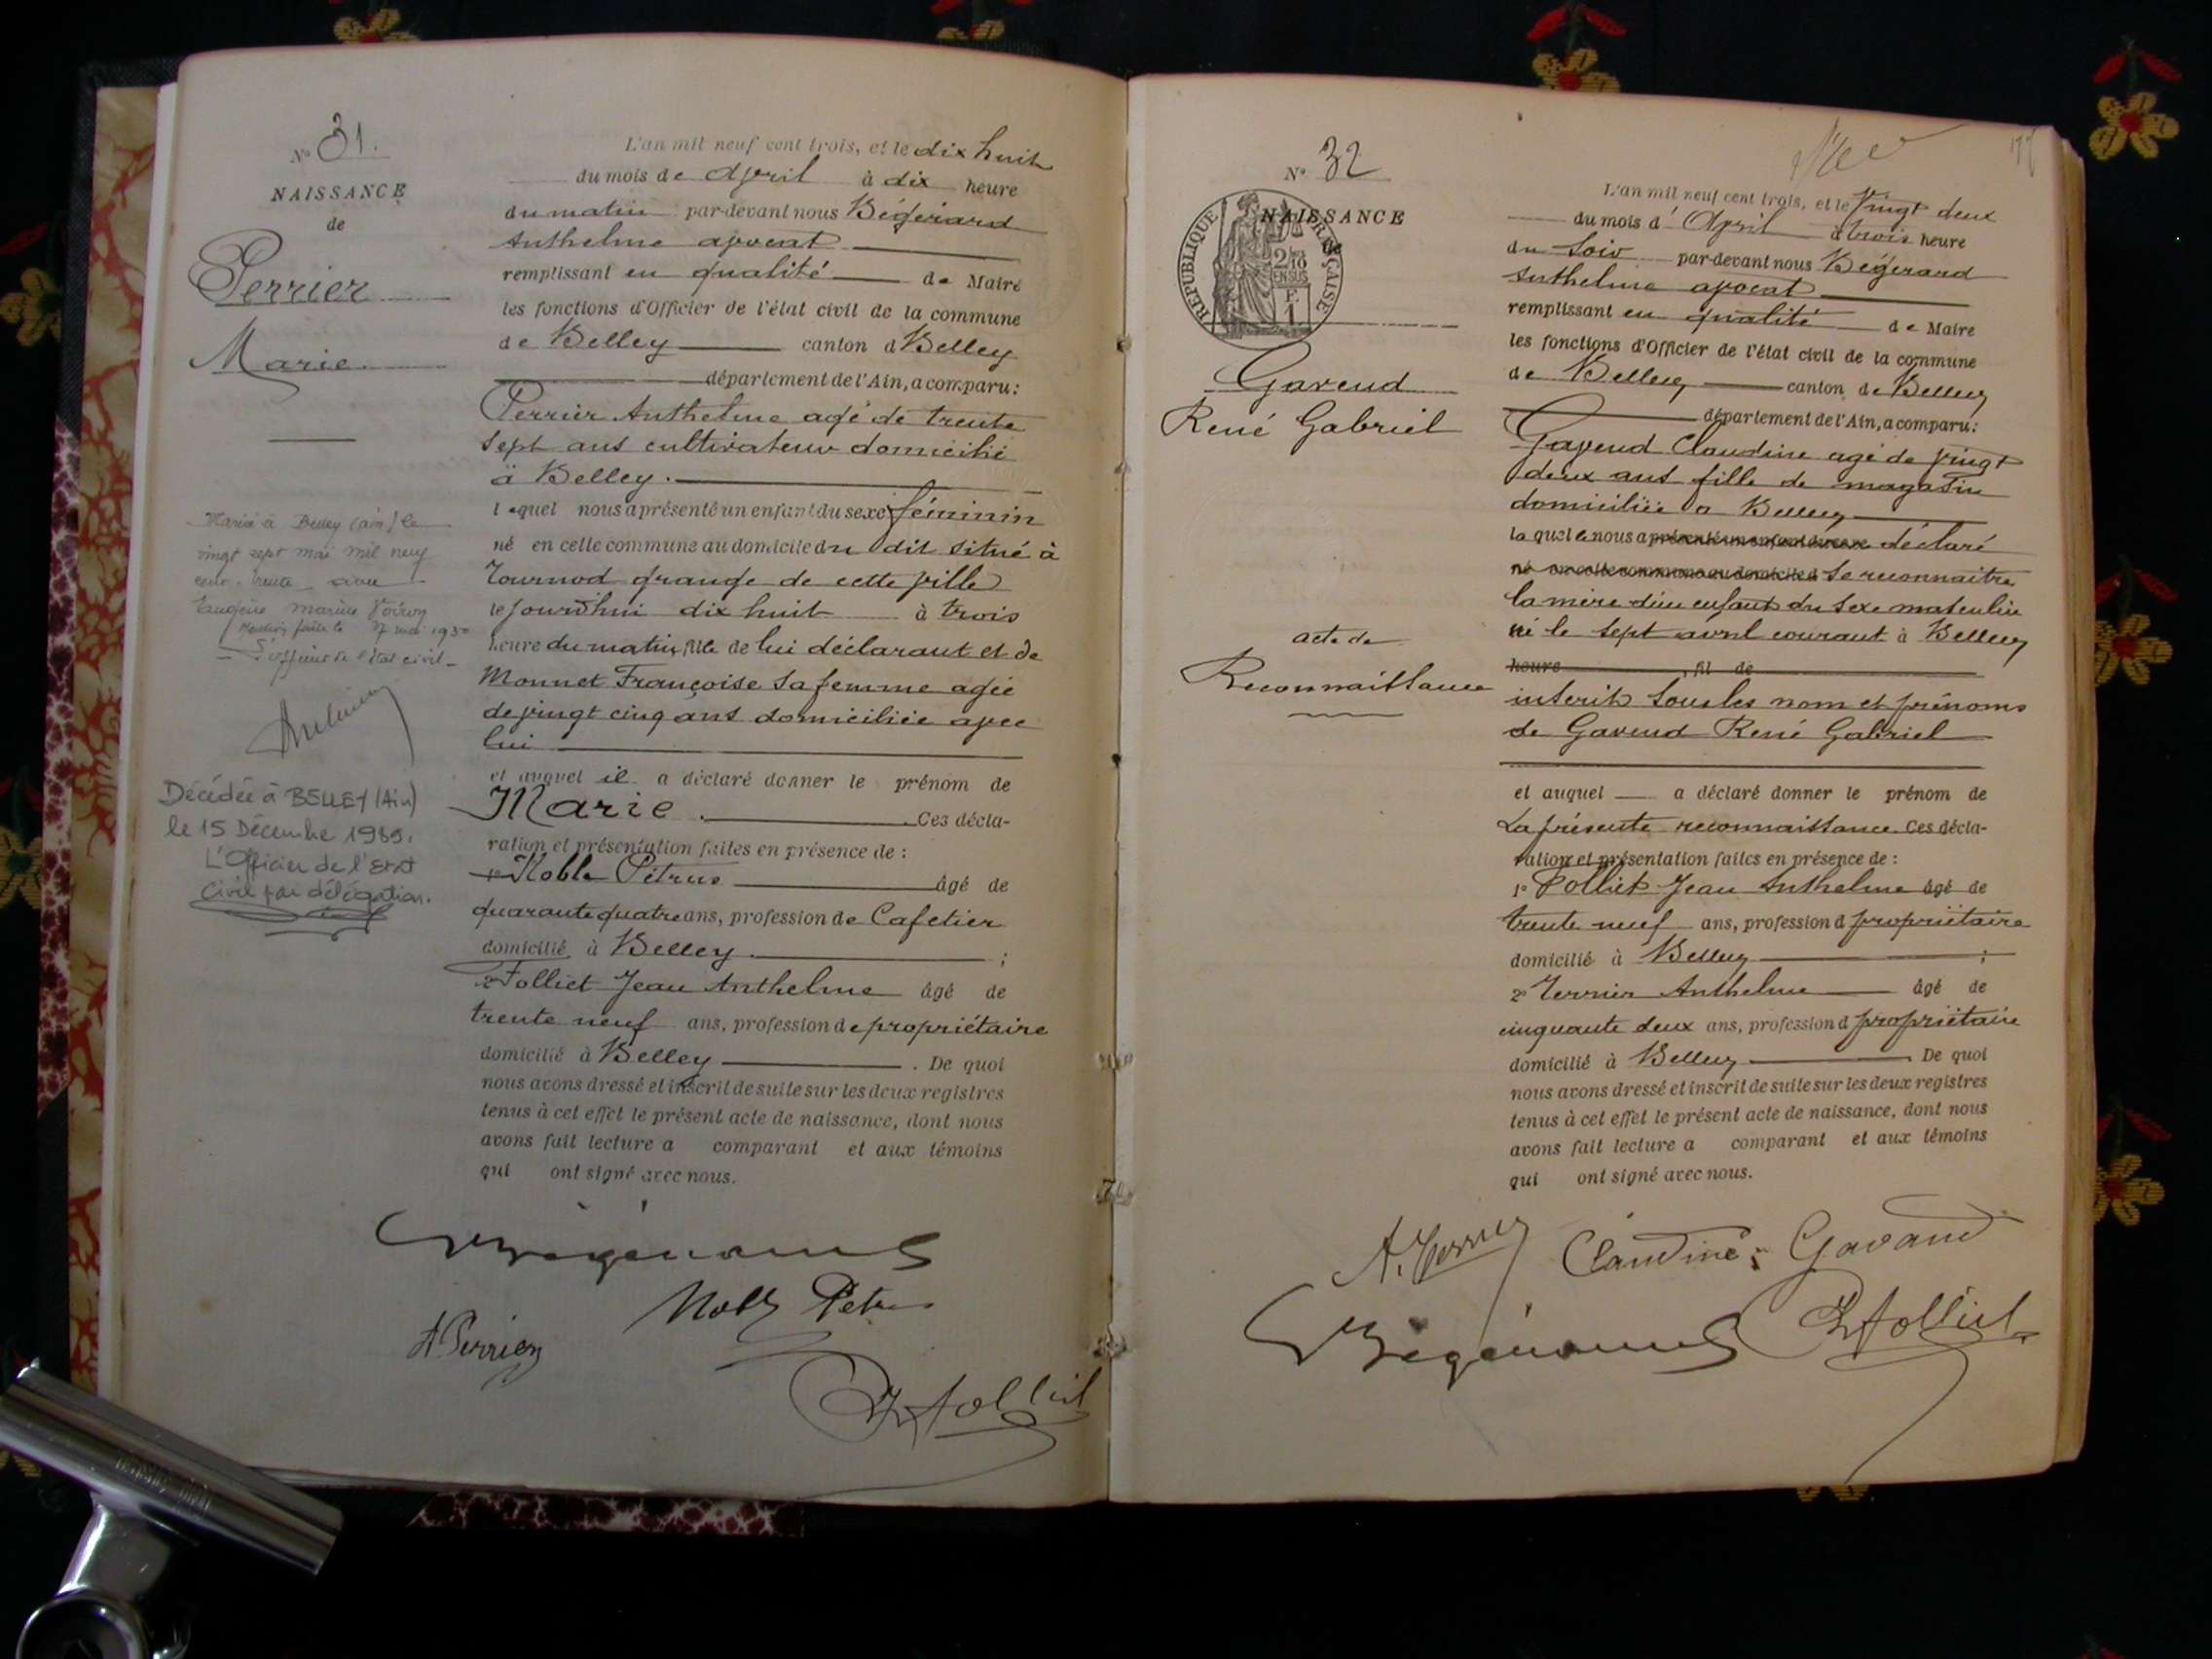 N° 31.
NAISSANCE
de
Perrier
Marie
Mariée à Belley (Ain) le
vingt sept mai mil neuf
cent trente avec
Eugène Marius
Mention faite le 27 mai 1930
L'officier de l'état civil
Décédée à BELLEY (Ain)
le 15 Décembre 1989.
L'Officier de l'Etat
Civil par délégation.
L'an mil neuf cent trois, et le dix huit
du mois de Avril à dix heure
du matin par-devant nous Bégerard
Anthelme avocat
remplissant en qualité de Maire
les fonctions d'Officier de l'état civil de la commune
de Belley canton d Belley
département de l'Ain, a comparu:
Perrier Anthelme agé de trente
sept ans cultivateur domicilié
à Belley.
lequel nous a présenté un enfant du sexe féminin
né en cette commune au domicile du dit situé à
Tournod grange de cette ville
le jourd'hui dix huit à trois
heure du matin, fille de lui déclarant et de
Monnet Françoise sa femme agée
de vingt cinq ans domiciliée avec
lui
et auquel il a déclaré donner le prénom de
Marie. Ces décla-
ration et présentation faites en présence de :
1° Noble Pétrus âgé de
quarante quatre ans, profession de Cafetier
domicilié à Belley ;
2° Folliet Jean Anthelme âgé de
trente neuf ans, profession de propriétaire
domicilié à Belley . De quoi
nous avons dressé et inscrit de suite sur les deux registres
tenus à cet effet le présent acte de naissance, dont nous
avons fait lecture a comparant et aux témoins
qui ont signé avec nous.
Bégerard
Noble Petrus
A Perrier
JAFolliet
N° 32
NAISSANCE
de
REPUBLIQUE FRANÇAISE
2/10
EN SUS
F.
1
Gavend
René Gabriel
acte de
Reconnaissance
L'an mil neuf cent trois, et le vingt deux
du mois d' Avril à trois heure
du soir par-devant nous Bégerard
Anthelme avocat
remplissant en qualité de Maire
les fonctions d'Officier de l'état civil de la commune
de Belley canton de Belley
département de l'Ain, a comparu:
Gavend Claudine agé de vingt
deux ans fille de magasin
domiciliée a Belley
laquelle nous a présenté un enfant du sexe déclaré
né en cette commune au domicile d se reconnaitre
la mère d'un enfant du sexe masculin
né le sept avril courant à Belley
heure , fil de
inscrit sous les nom et prénoms
de Gavend René Gabriel
et auquel a déclaré donner le prénom de
La présente reconnaissance Ces décla-
ration et présentation faites en présence de :
1° Folliet Jean Anthelme âgé de
trente neuf ans, profession d propriétaire
domicilié à Belley ;
2° Terrier Anthelme âgé de
cinquante deux ans, profession d propriétaire
domicilié à Belley . De quoi
nous avons dressé et inscrit de suite sur les deux registres
tenus à cet effet le présent acte de naissance, dont nous
avons fait lecture a comparant et aux témoins
qui ont signé avec nous.
Claudine Gavand
Bégerard
JAFolliet